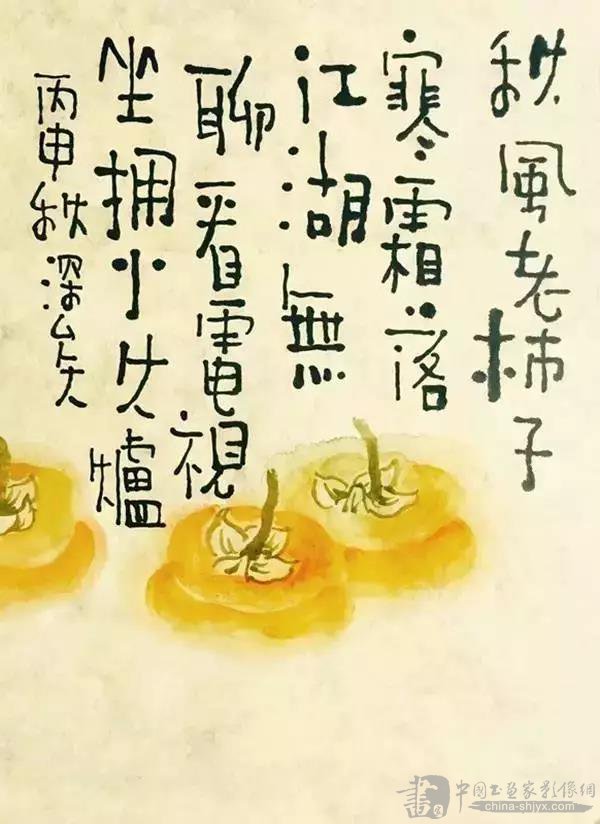 秋風老柿子
寒霜落
江湖無
聊看電視
坐擁小火爐
丙申秋深矣
書
中國書畫家影像網
china-shjyx.com